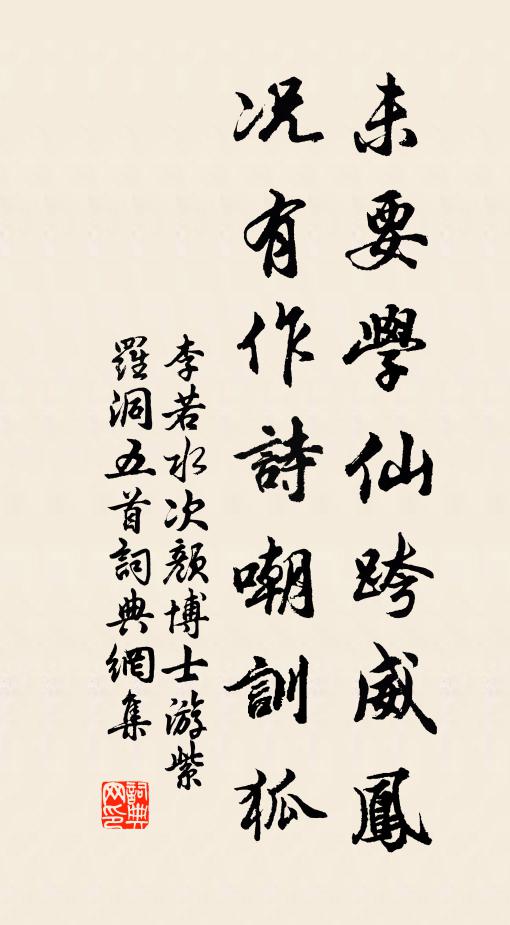 未要學仙跨威鳳
况有作詩嘲訓狐
李若水次顏博士游紫
羅洞五首詞典網集
詞典
网印